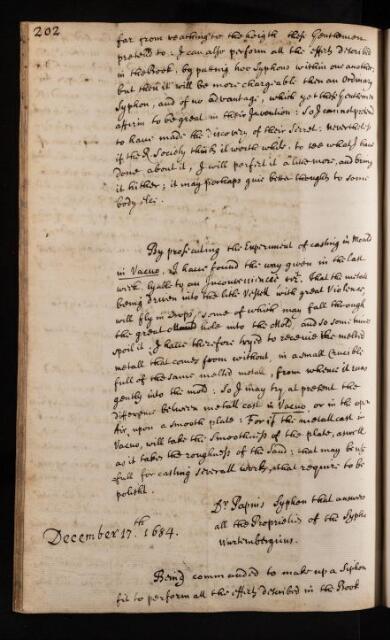 202
far from reaching to the heigth these Gentlemen
pretend to: I can also perform all the effects described
in the Book, by putting two Syphons within one another,
but then it will be more chargeable then an Ordinary
Syphon, and of no advantage, which yet these Gentlemen
affirm to be great in their Invention: So I cannot pretend
to have made the Discovery of their Secret: nevertheless
if the R. Society think it worth while, to see what I have
done about it, I will perfect it a little more, and bring
it hither; it may perhaps give better thoughts to some
body else.
By prosecuting the Experiment of casting in Moulds
in Vacuo, I have found the way given in the last
week, lyable to an Inconveniencie viz. that the metall
being driven into the little Vessell with great Violence,
will fly in drops, some of which may fall through
the great hole into the Mold, and so sometimes
spoil it: I have therefore try'd to receive the melted
metall that comes from without, in a small Crucible
full of the same melted metal, from whence it runs
gently into the mold: So I may try at present the
difference between metall cast in Vacuo, or in the open
Air, upon a smooth plate: For if the metall cast in
Vacuo, will take the smoothness of the plate, as well
as it takes the roughness of the Sand: that may be use-
full for casting severall works, that require to be
polisht.
Dr. Papins Syphon that answers
all the Proprieties of the Sypho
Wurtenbergicus.
December 17.th 1684.
Being commanded to make up a Siphon
fit to perform all the effects described in the Book